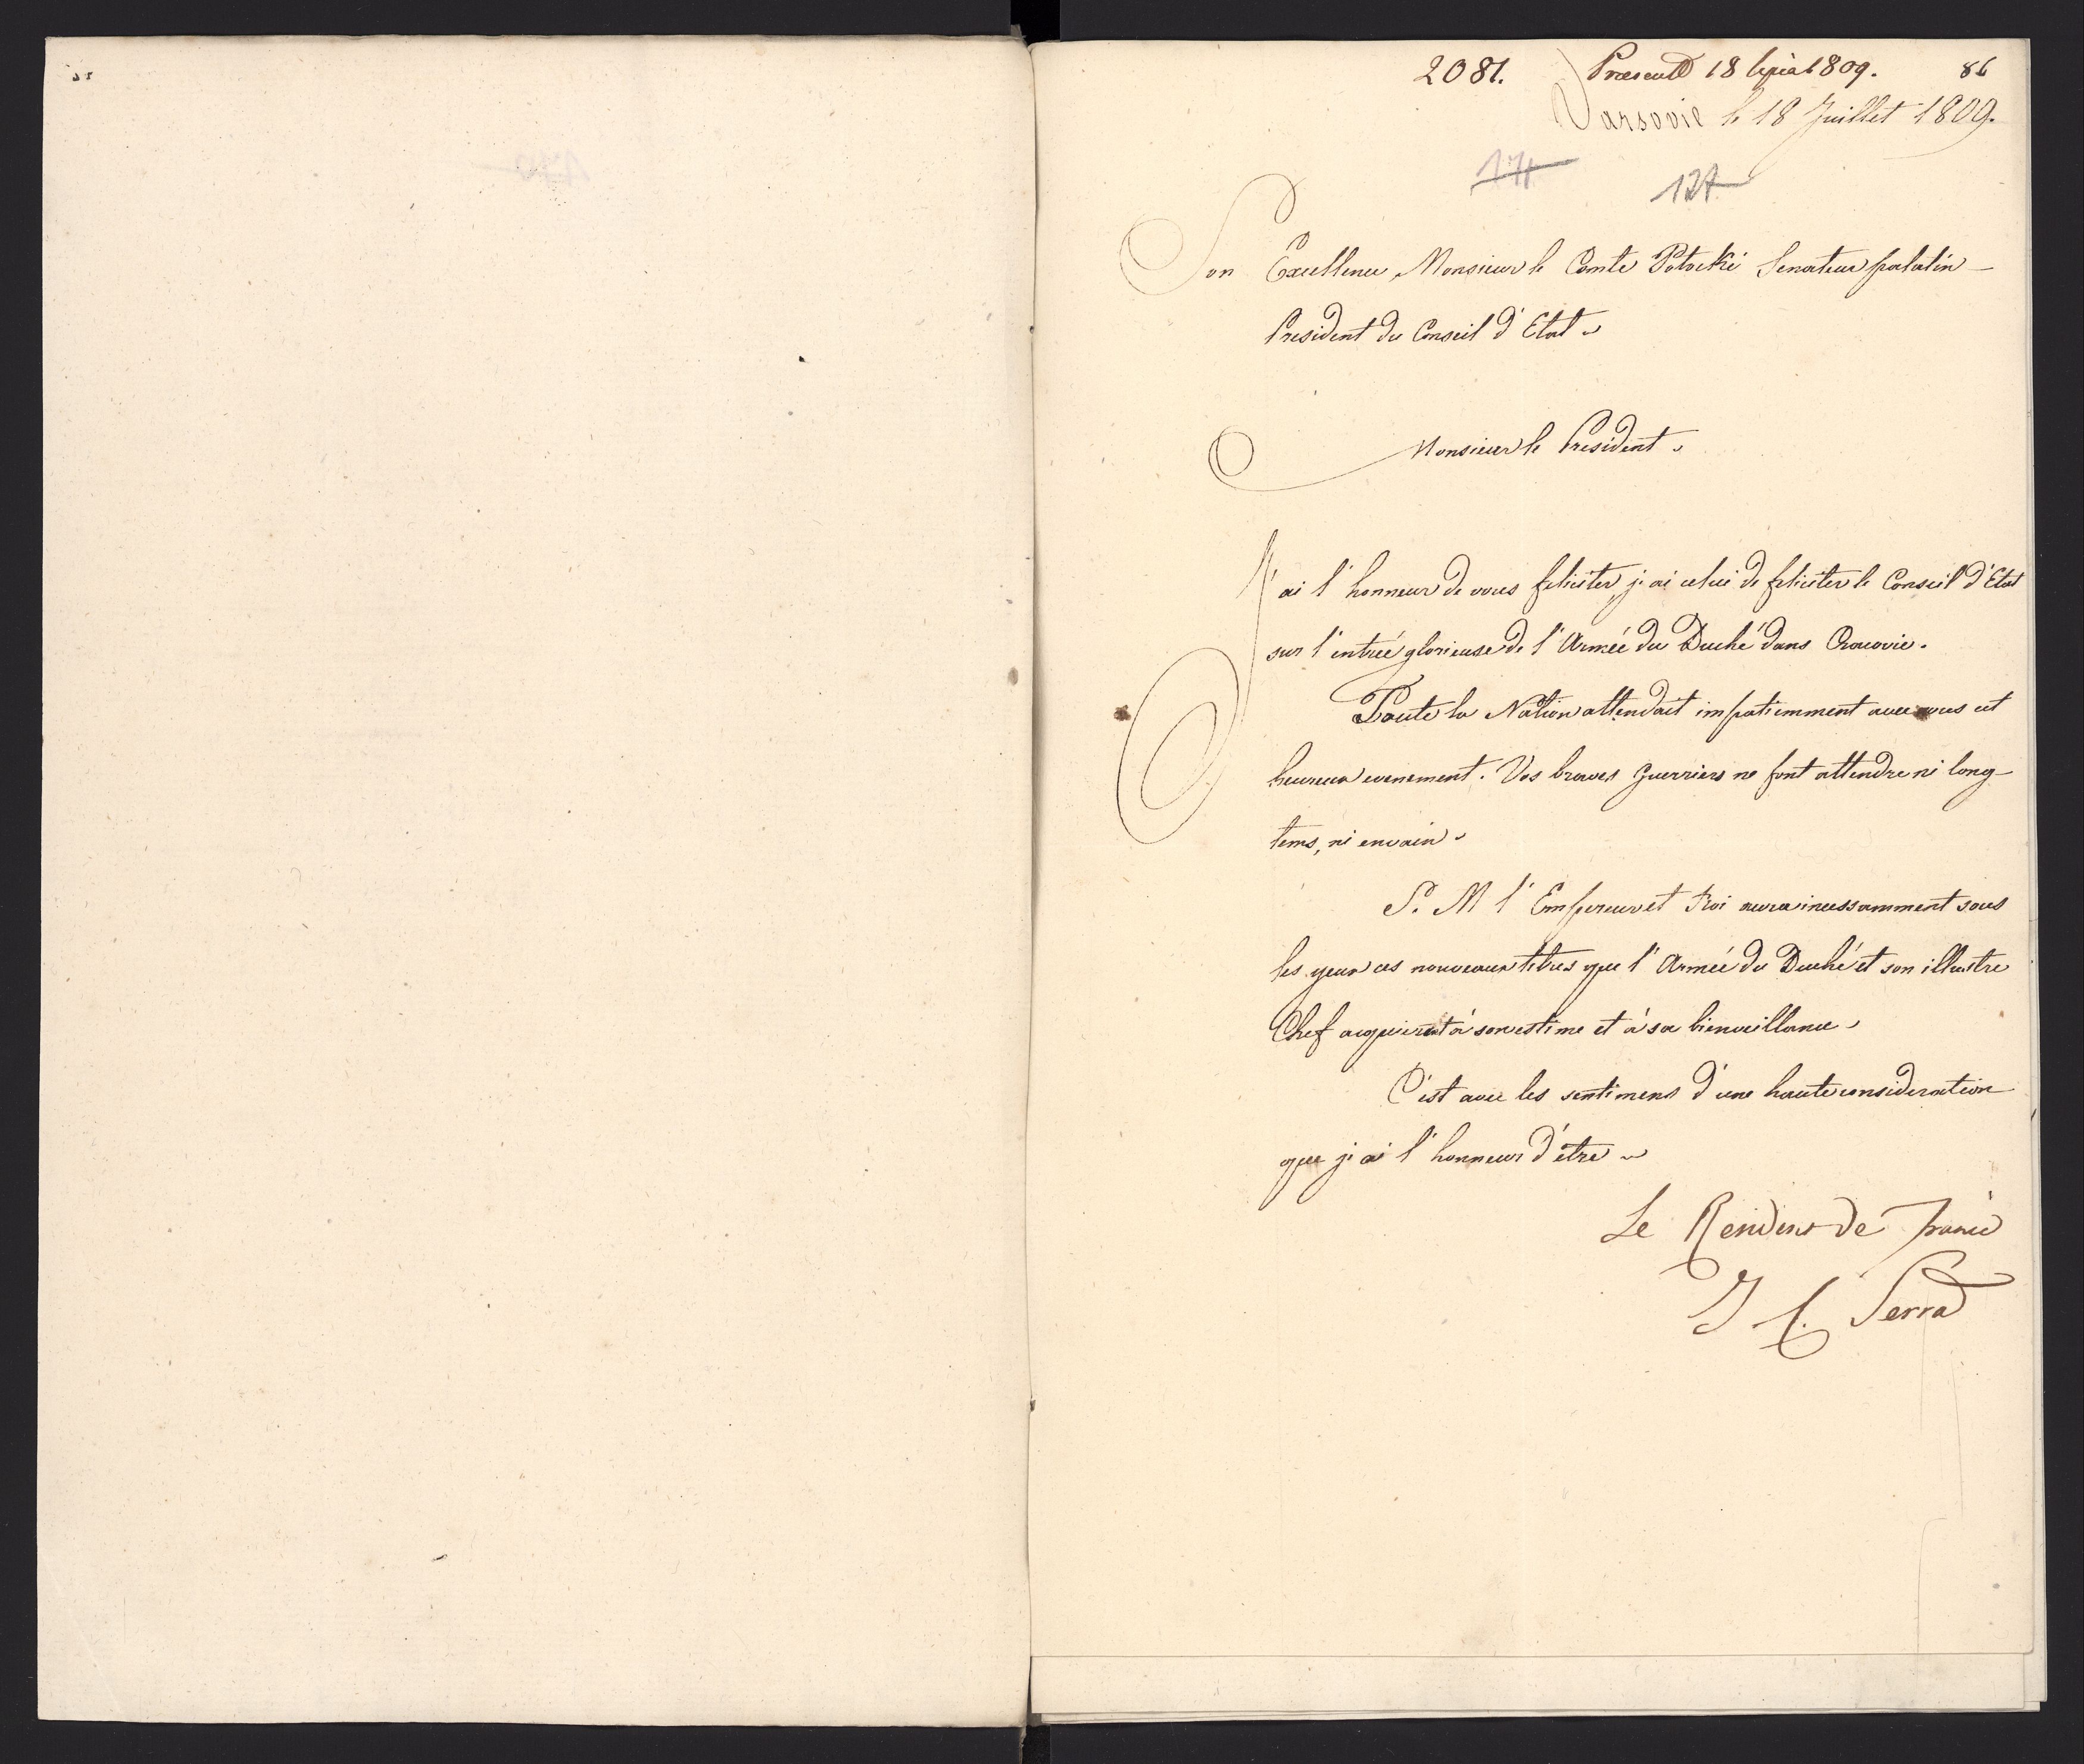 2081. Praesent 18 lipca 1809. 86
Varsovie le 18 Juillet 1809.
127
Son Excellence, Monsieur le Comte Potocki Senateur palatin
President du Conseil d'Etat
Monsieur le President
J'ai l'honneur de vous feliciter, j'ai celui de feliciter le Conseil d'Etat
sur l'entrée glorieuse de l'Armée du Duché dans Cracovie.
Toute la Nation attendait impatiemment avec vous cet
heureux evenement. Vos braves guerriers ne font attendre ni long-
tems, ni envain
S. M l'Empereur et Roi aura incessamment sous
les yeux ces nouveaux titres que l'Armée du Duché et son illustre
Chef acquierent à son estime et à sa bienveillance
C'est avec les sentimens d'une haute consideration
que j'ai l'honneur d'être
Le Resident de France
J C. Serra